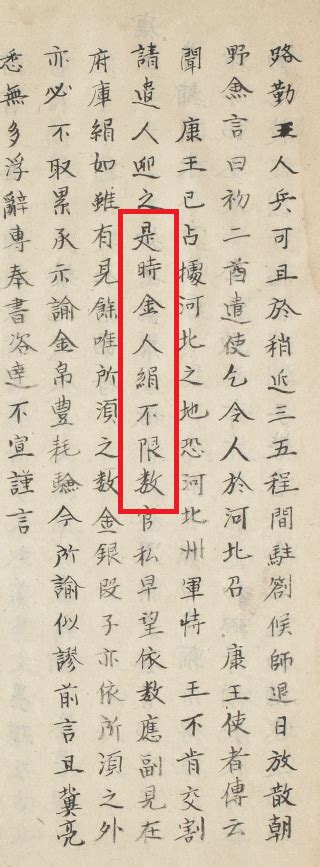 路勤王人兵可且於稍近三五程間駐劄候師退日放散朝
野僉言曰初二酋遣使乞令人於河北召 康王使者傳云
聞 康王已占據河北之地恐河北州軍特 王不肯交割
請遣人迎之是時金人絹不限數官私早望依數應副見在
府庫絹如雖有見餘唯所湏之数金銀段子亦依所湏之外
亦必不取累承示諭金帛豊耗驗今所諭似謬前言且冀亮
悉無多浮辭専奉書咨達不宣謹言